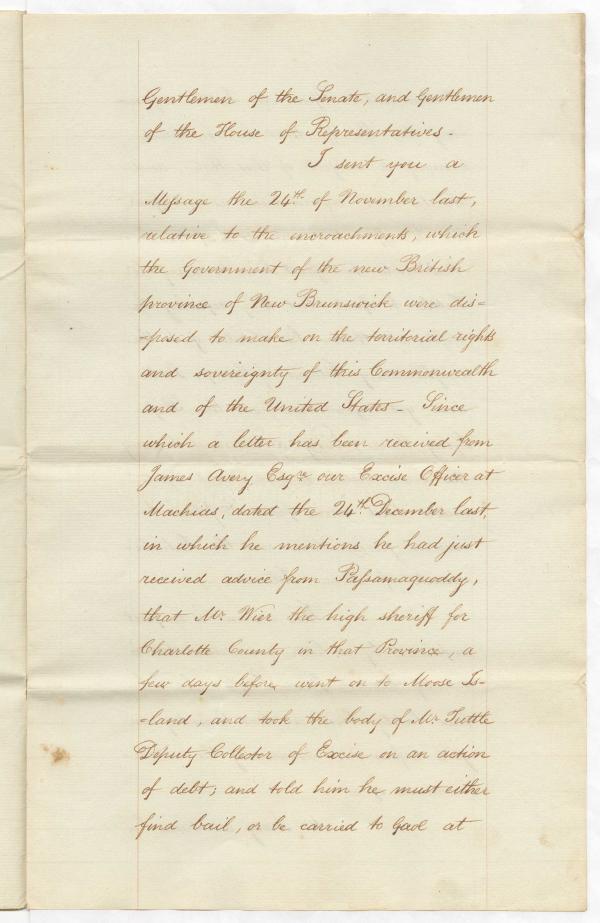 Gentlemen of the Senate, and Gentlemen
of the House of Representatives.
I sent you a
Message the 24th. of November last,
relative to the encroachments, which
the Government of the new British
province of New Brunswick were dis=
=posed to make on the territorial rights
and sovereignty of this Commonwealth
and of the United States_ Since
which a letter has been received from
James Avery Esqre. our Excise Officer at
Machias, dated the 24th. December last,
in which he mentions he had just
received advice from Passamaquoddy,
that Mr. Wier the high sheriff for
Charlotte County in that Province, a
few days before, went on to Moose Is=
=land, and took the body of Mr. Tuttle
Deputy Collector of Excise on an action
of debt; and told him he must either
find bail, or be carried to Gaol at